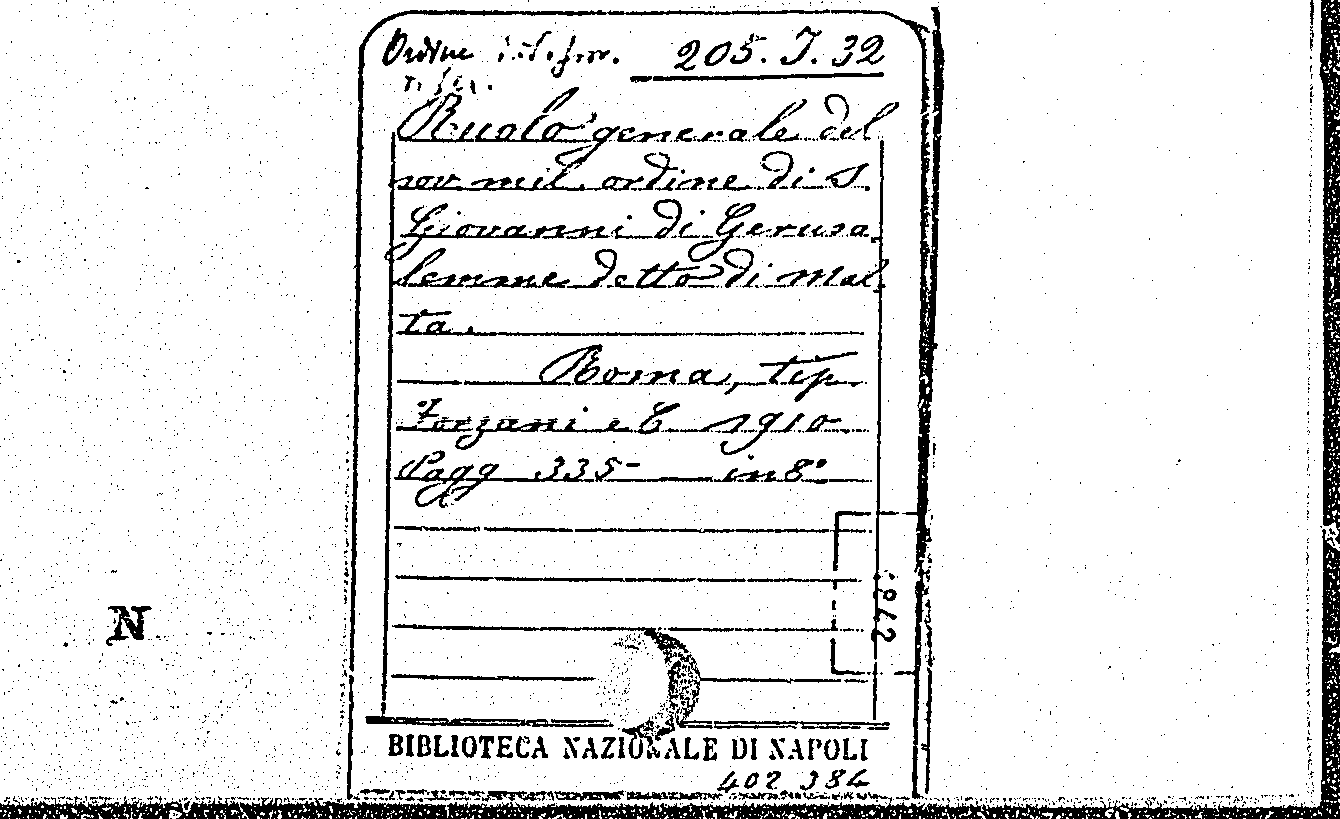 Ordine 205. J. 32
Ruolo generale del
sov. mil. ordine di S.
Giovanni di Gerusa-
lemme detto di Mal-
ta.
Roma, tip.
Forzani e C. 1910
Pagg 335 — in 8°
N
BIBLIOTECA NAZIONALE DI NAPOLI
402 384